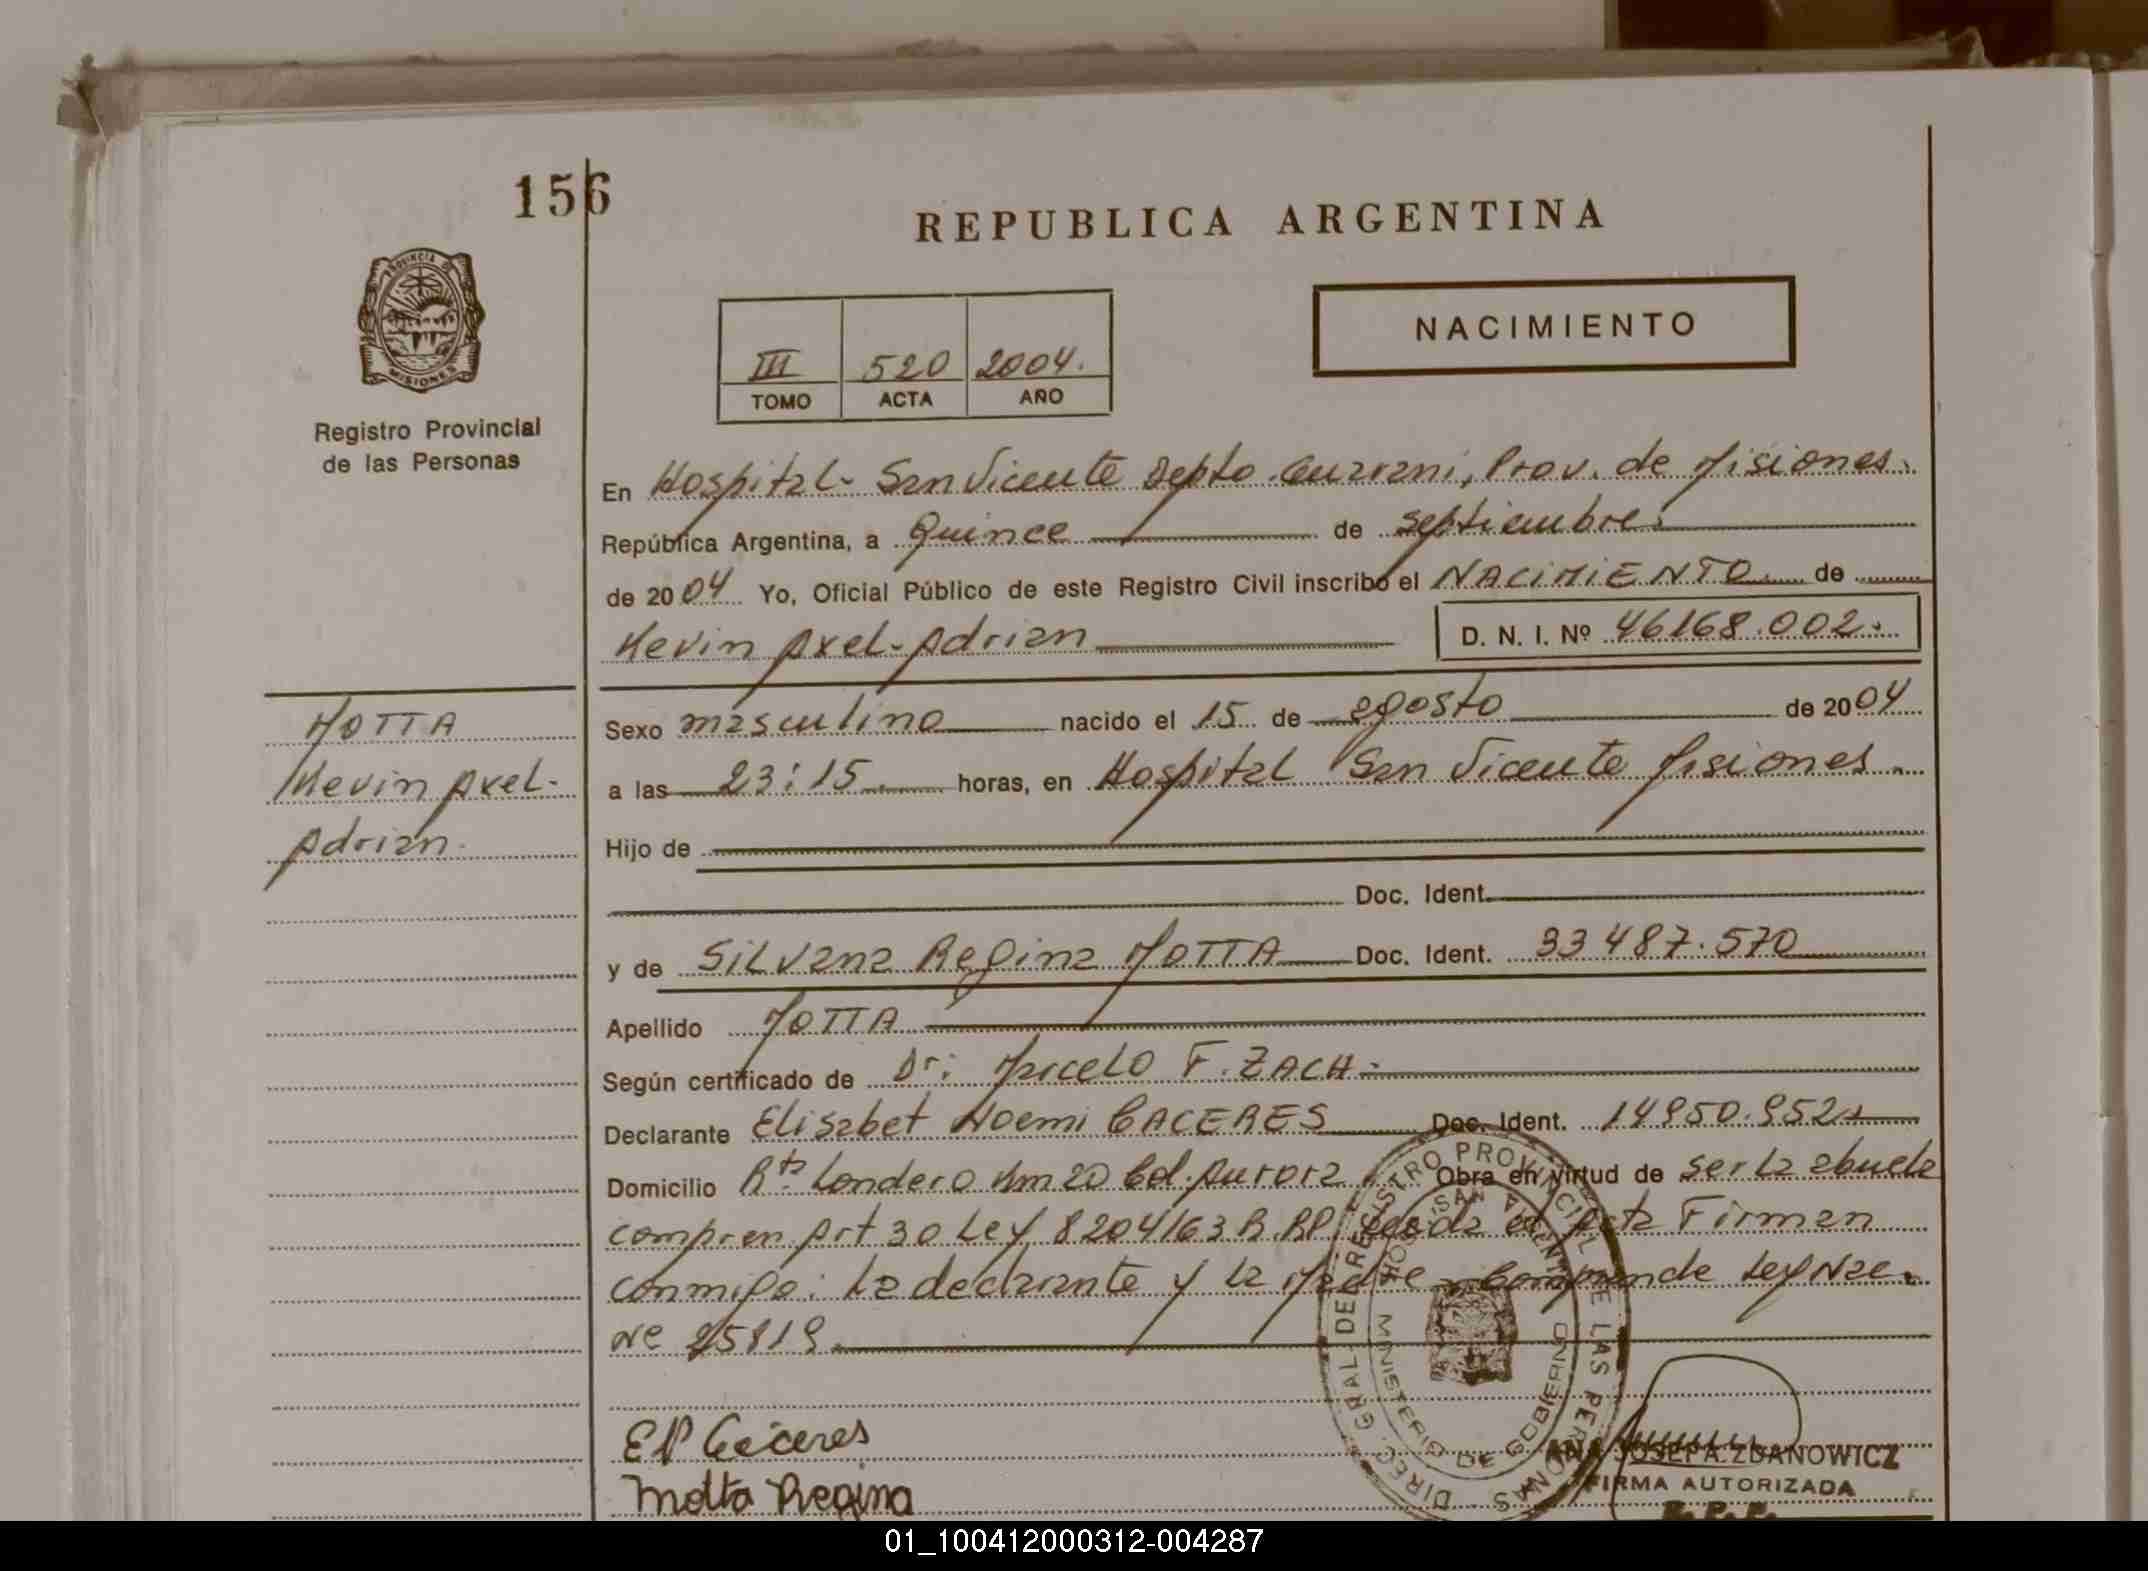 156
REPUBLICA ARGENTINA
PROVINCIA DE
MISIONES
NACIMIENTO
III 520 2004.
TOMO ACTA AÑO
Registro Provincial
de las Personas
En Hospital - San Vicente Depto. Guarani, Prov. de Misiones.
República Argentina, a Quince de Septiembre.
de 2004 Yo, Oficial Público de este Registro Civil inscribo el NACIMIENTO de
Kevin Axel - Adrian D. N. I. Nº 46168.002.
MOTTA
Kevin Axel -
Adrian.
Sexo masculino nacido el 15 de agosto de 2004
a las 23:15 horas, en Hospital San Vicente Misiones.
Hijo de
Doc. Ident.
y de Silvana Regina MOTTA Doc. Ident. 33487.570
Apellido MOTTA
Según certificado de Dr: Marcelo F. ZACH -
Declarante Elisabet Noemi CACERES Doc. Ident. 14950.952
Domicilio Rta Londero Km 20 Col. Aurora Obra en virtud de ser la abuela
compren Art 30 Ley 8204/63 R. RP Leida el Acta Firman
conmigo: La declarante y la Madre - Comprende Ley Nac.
Ne 25819.
DIREC. GRAL. DE REGISTRO PROVINCIAL DE LAS PERSONAS
HOSP. SAN VICENTE
MINISTERIO DE GOBIERNO
EN Caceres
Motta Regina
ANA JOSEFA ZDANOWICZ
FIRMA AUTORIZADA
R.P.P.
01_100412000312-004287